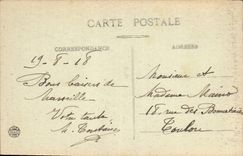 CARTE POSTALE
CORRESPONDANCE
ADRESSE
19-8-18
Bons baisers de
Marseille
Votre tante
Monsieur et
Madame
18 rue des
Toulon